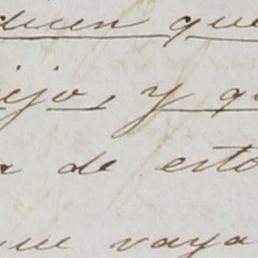 dicen que
viejo, y qu
a de esto
que vaya